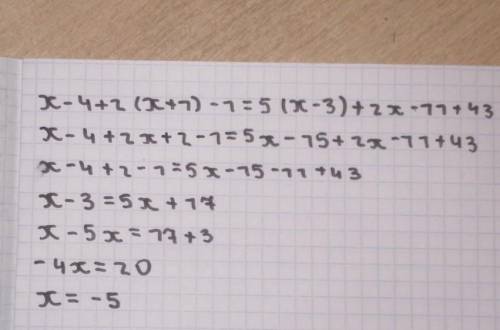 x-4+2(x+1)-1=5(x-3)+2x-11+43
x-4+2x+2-1=5x-15+2x-11+43
x-4+2-1=5x-15-11+43
x-3=5x+17
x-5x=17+3
-4x=20
x=-5